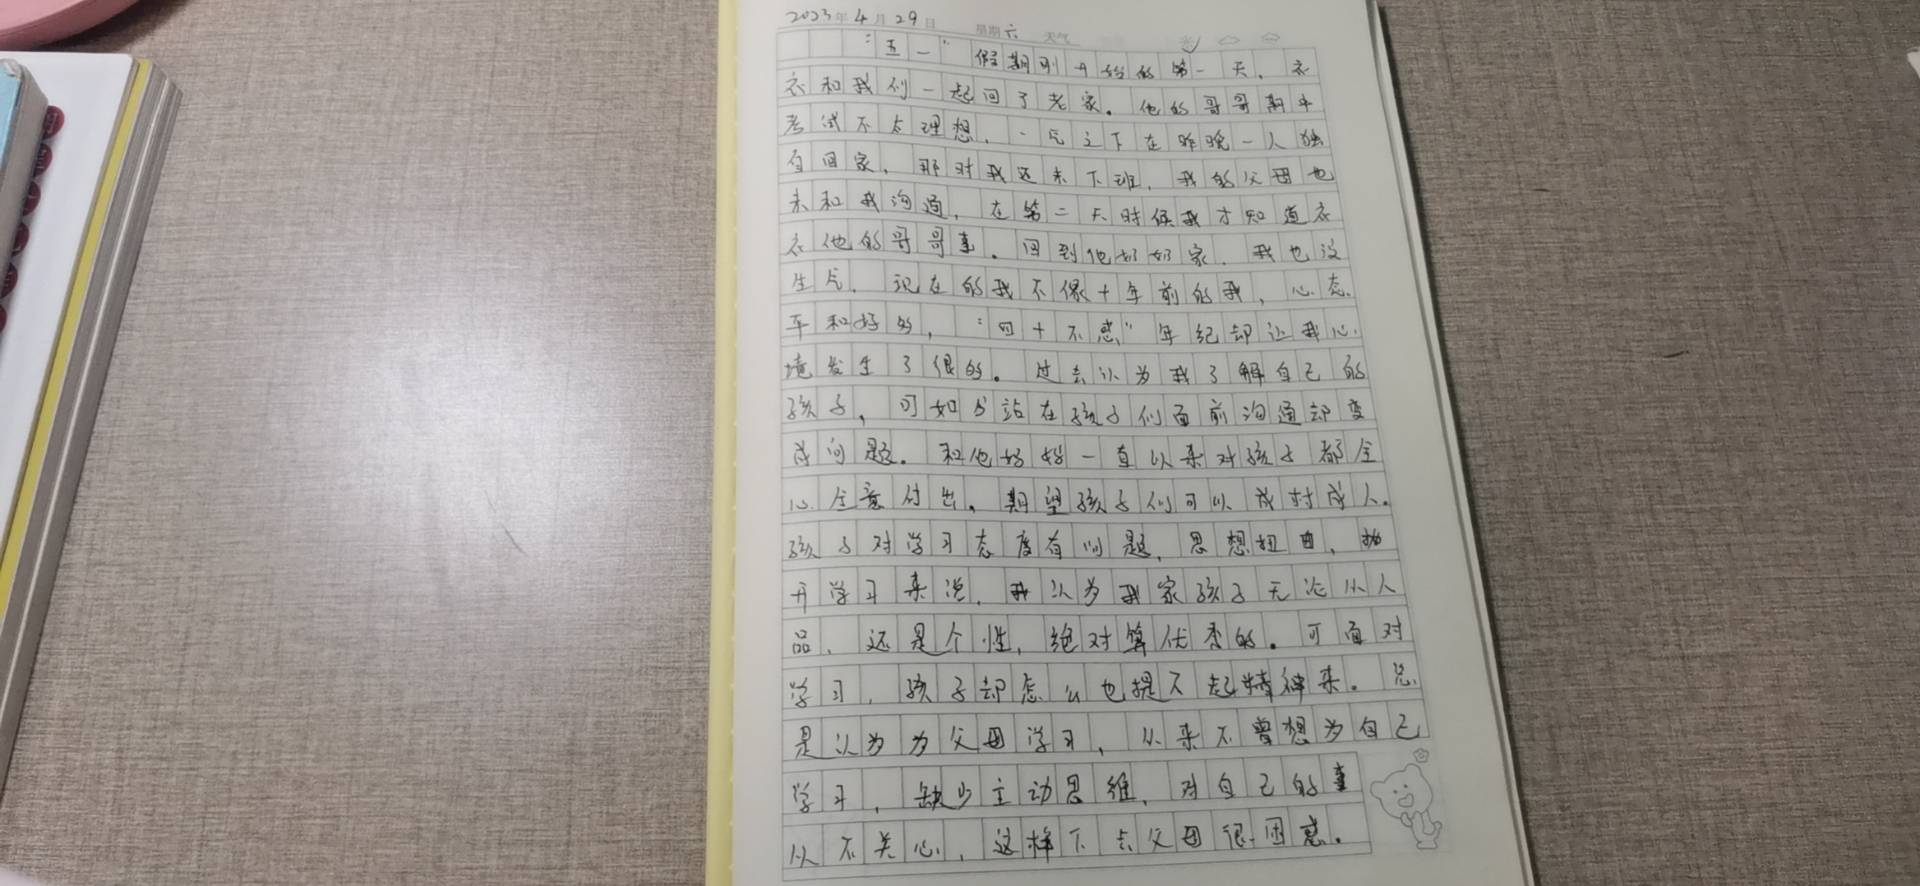 2023年4月29日 星期六 天气
“五一”假期刚开始的第一天，衣
衣和我们一起回了老家。他的哥哥期中
考试不太理想，一气之下在昨晚一人独
自回家，那时我还未下班，我的父母也
未和我沟通，在第二天时候我才知道衣
衣他的哥哥事。回到他奶奶家，我也没
生气，现在的我不像十年前的我，心态
平和好多，“四十不惑”年纪却让我心
境发生了很的。过去认为我了解自己的
孩子，可如今站在孩子们面前沟通却变
成问题。和他妈妈一直以来对孩子都全
心全意付出，期望孩子们可以成材成人。
孩子对学习态度有问题，思想扭曲，抛
开学习来说，我认为我家孩子无论从人
品，还是个性，绝对算优秀的。可面对
学习，孩子却怎么也提不起精神来。总
是认为为父母学习，从来不曾想为自己
学习，缺少主动思维，对自己的事
从不关心，这样下去父母很困惑。